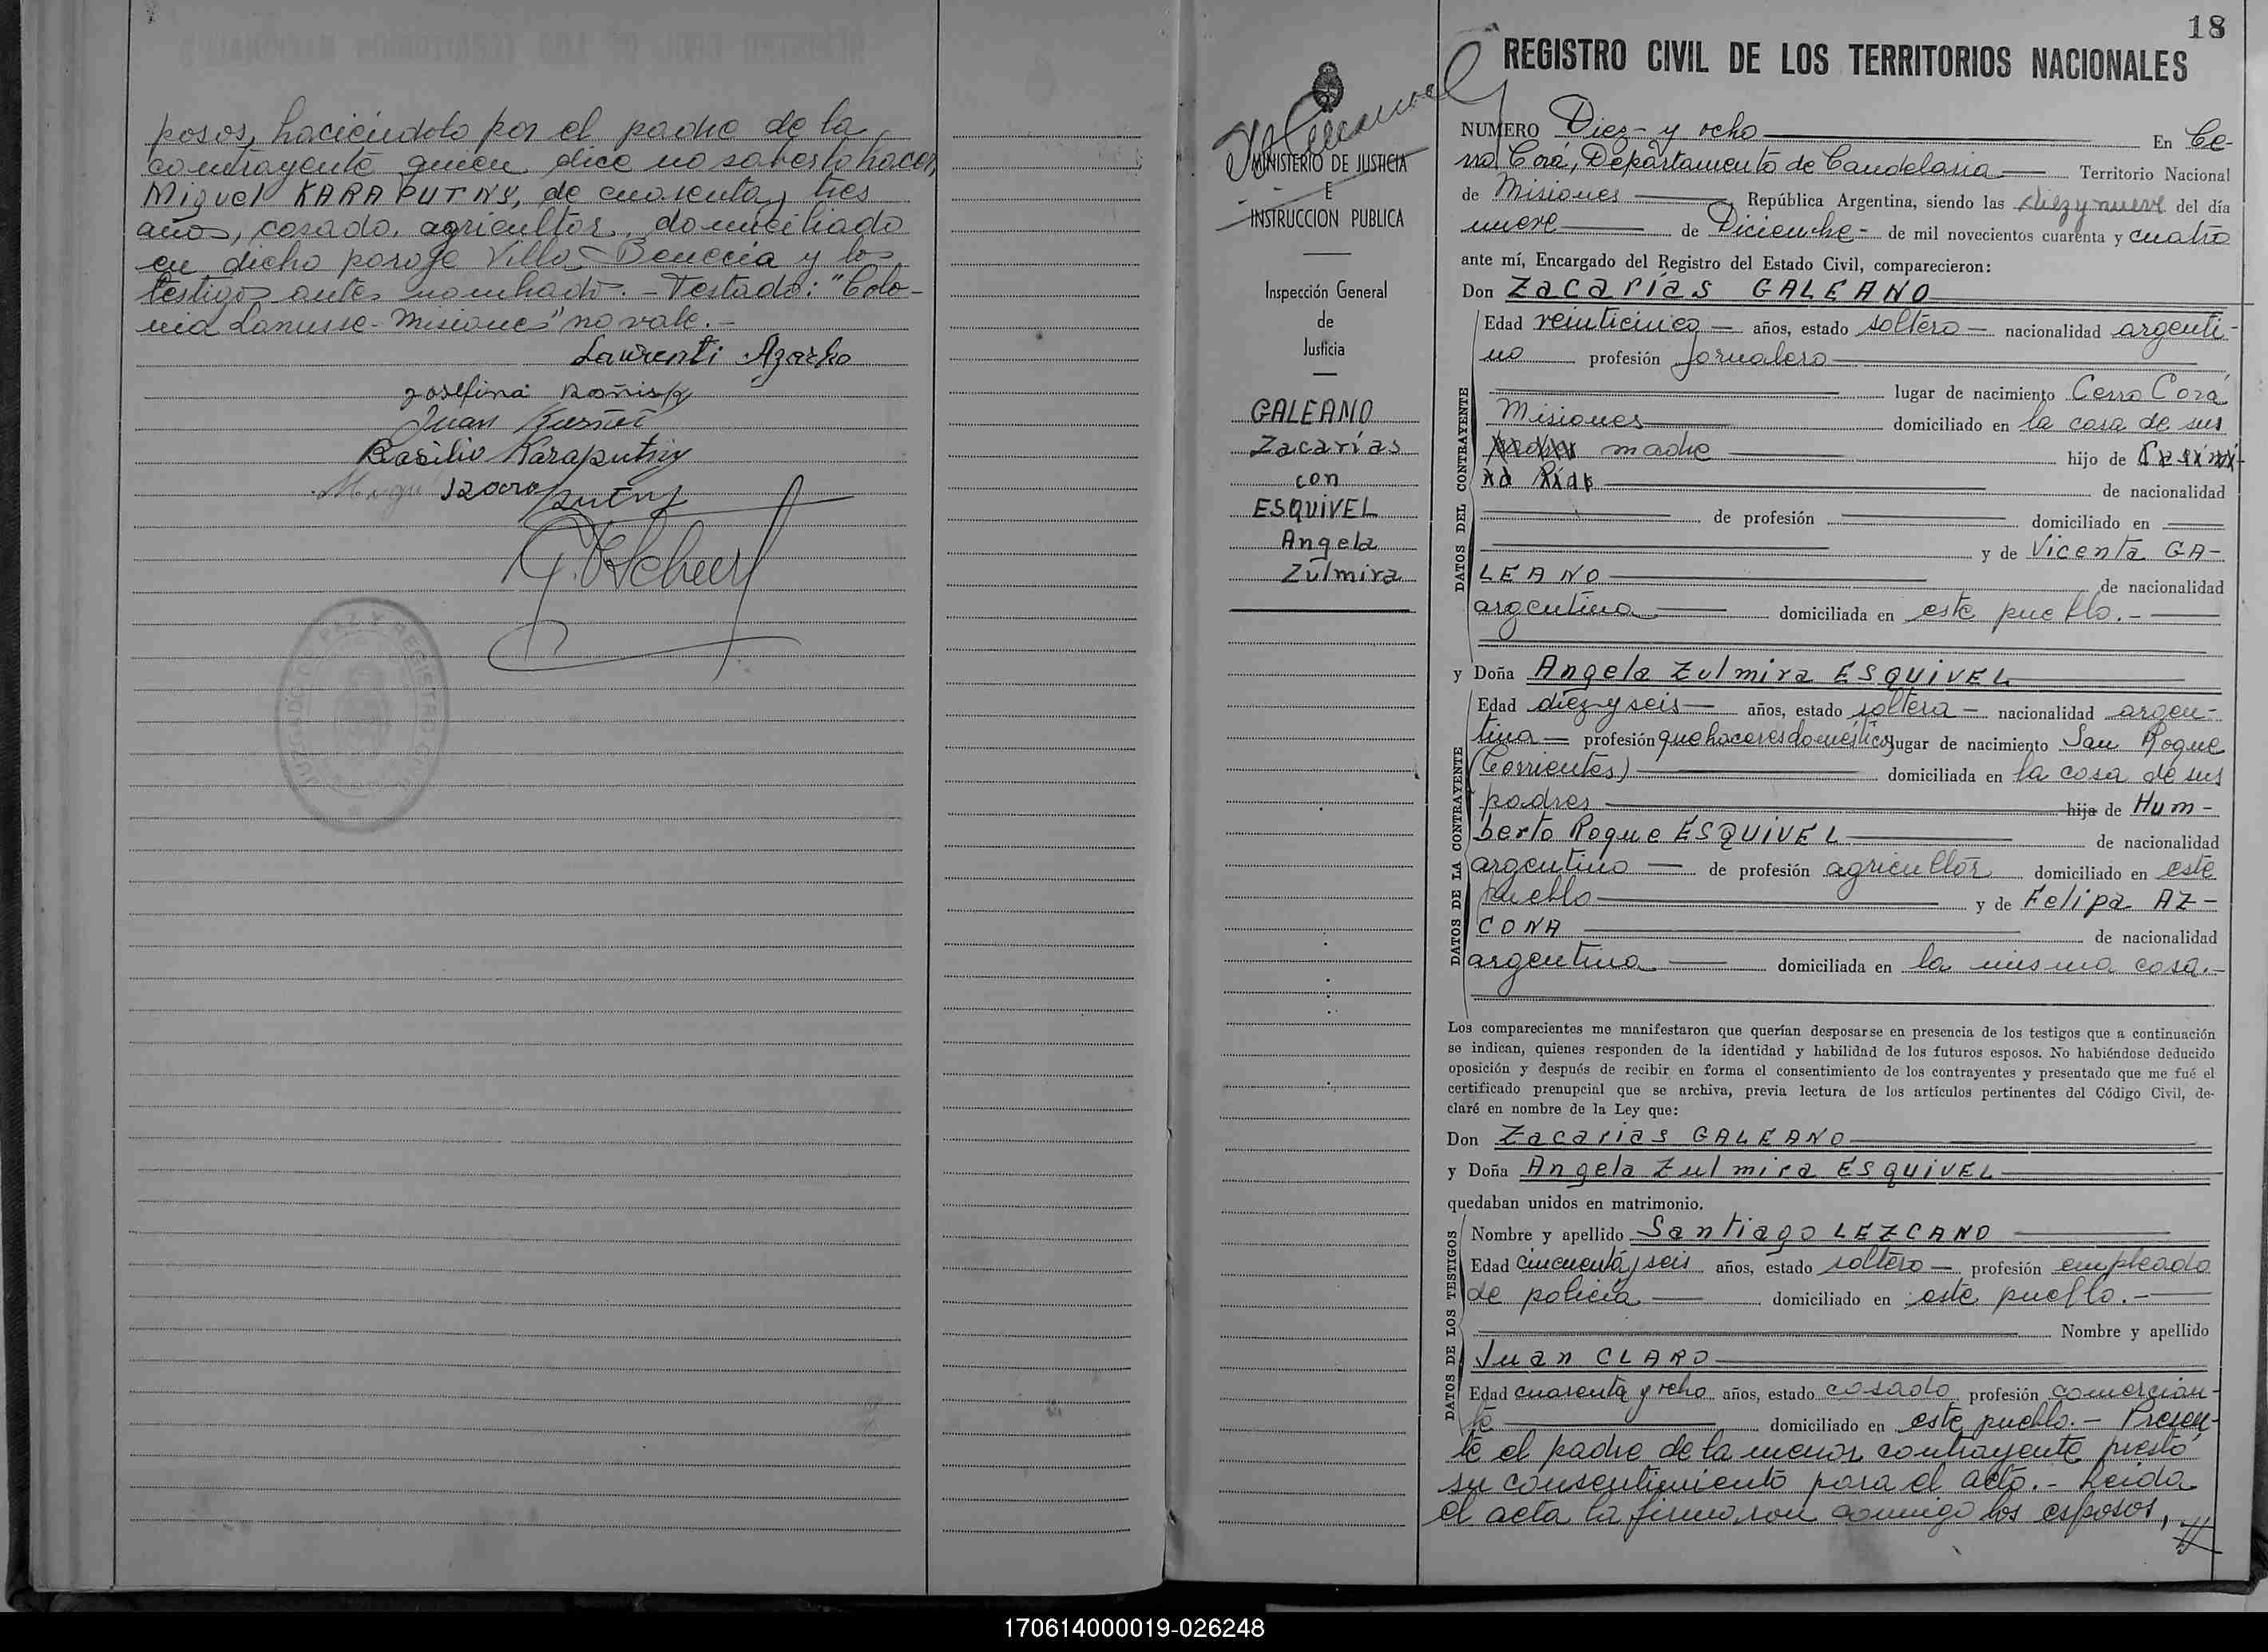 posos, haciéndolo por el padre de la
contrayente quien dice no saberlo hacer,
Miguel KARAPUTNY, de cuarenta y tres
años, casado, agricultor, domiciliado
en dicho paraje Villa Venecia y los
testigos antes nombrados.- Testado: "Colo-
nia Lanusse-Misiones" no vale.-
Laurenti
Josefina
Juan
Basilio Karaputny
18
REGISTRO CIVIL DE LOS TERRITORIOS NACIONALES
MINISTERIO DE JUSTICIA
E
INSTRUCCION PUBLICA
Inspección General
de
Justicia
GALEANO
Zacarías
con
ESQUIVEL
Angela
Zulmira
NUMERO Diez y ocho En Ce-
rro Corá, Departamento de Candelaria Territorio Nacional
de Misiones República Argentina, siendo las diez y nueve del día
nueve de Diciembre de mil novecientos cuarenta y cuatro
ante mí, Encargado del Registro del Estado Civil, comparecieron:
Don Zacarías GALEANO
Edad veinticinco años, estado soltero nacionalidad argenti-
no profesión jornalero
lugar de nacimiento Cerro Corá
Misiones domiciliado en la casa de sus
madre hijo de
de nacionalidad
de profesión domiciliado en
y de Vicenta GA-
LEANO de nacionalidad
argentina domiciliada en este pueblo.-
DATOS DEL CONTRAYENTE
y Doña Angela Zulmira ESQUIVEL
Edad diez y seis años, estado soltera nacionalidad argen-
tina profesión quehaceres domésticos lugar de nacimiento San Roque
(Corrientes) domiciliada en la casa de sus
padres hija de Hum-
berto Roque ESQUIVEL de nacionalidad
argentino de profesión agricultor domiciliado en este
pueblo y de Felipa AZ-
CONA de nacionalidad
argentina domiciliada en la misma casa.-
DATOS DE LA CONTRAYENTE
Los comparecientes me manifestaron que querían desposarse en presencia de los testigos que a continuación
se indican, quienes responden de la identidad y habilidad de los futuros esposos. No habiéndose deducido
oposición y después de recibir en forma el consentimiento de los contrayentes y presentado que me fué el
certificado prenupcial que se archiva, previa lectura de los artículos pertinentes del Código Civil, de-
claré en nombre de la Ley que:
Don Zacarias GALEANO
y Doña Angela Zulmira ESQUIVEL
quedaban unidos en matrimonio.
Nombre y apellido Santiago LEZCANO
Edad cincuenta y seis años, estado soltero profesión empleado
de policía domiciliado en este pueblo.-
Nombre y apellido
Juan CLARO
Edad cuarenta y ocho años, estado casado profesión comercian-
te domiciliado en este pueblo.- Presen-
DATOS DE LOS TESTIGOS
te el padre de la menor contrayente prestó
su consentimiento para el acto.- Leida
el acta la firmaron conmigo los esposos,
170614000019-026248